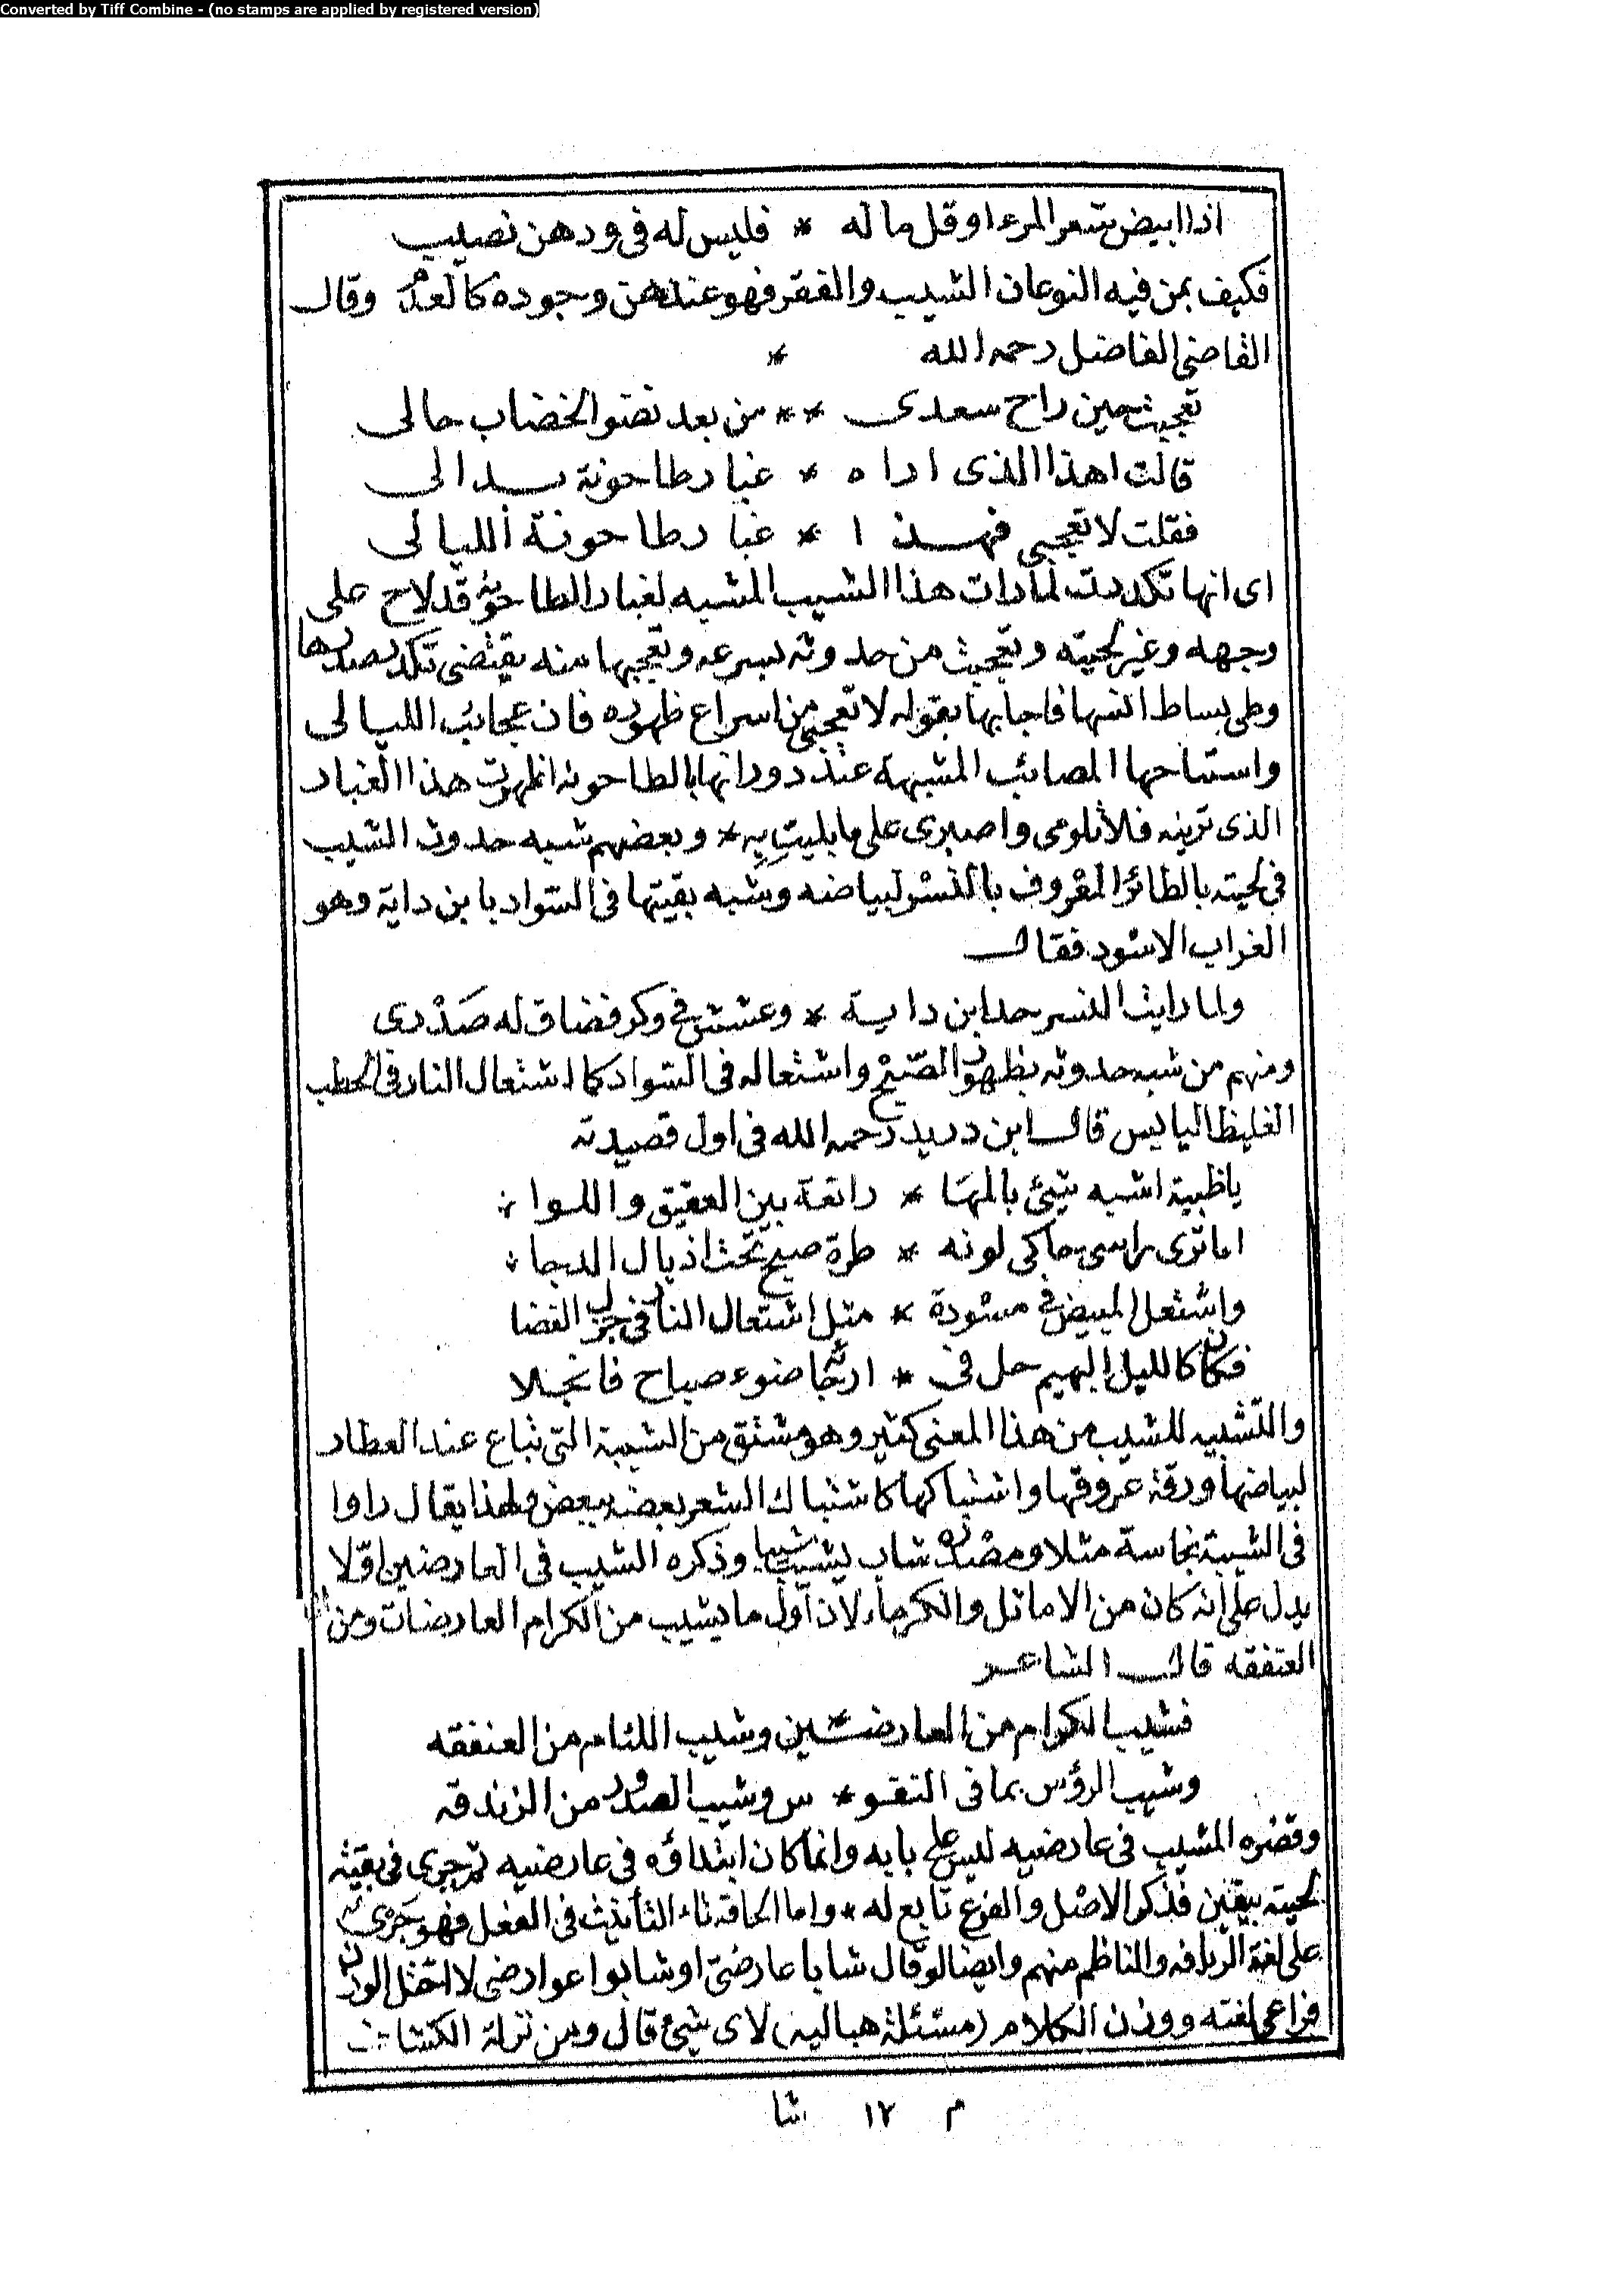 Converted by Tiff Combine - (no stamps are applied by registered version)
اذا ابيض شعر المرء او قل ماله * فليس له فى ودهن نصيب
فكيف بمن فيه النوعان الشيب والفقر فهو عندهن وجوده كالعدم وقال
القاضى الفاضل رحمه الله *
تعجبت حين راح سعدى ** من بعد نضو الخضاب حالى
قالت اهذا الذى اراه * غبار طاحونة بدا لى
فقلت لا تعجبى فهذا * غبار طاحونة الليالى
اى انها تكدرت لما رات هذا الشيب المشبه لغبار الطاحونه قد لاح على
وجهه وغير لحيته وتعجبت من حدوثه بسرعه وتعجبها منه يقتضى تكدر صدرها
وطى بساط انسها فاجابها بقوله لا تعجبى من اسراع ظهوره فان عجائب الليالى
واستتاحها المصائب المشبهة عند دورانها بالطاحونه اظهرت هذا الغبار
الذى ترينه فلا تلومى واصبرى على ما بليت به * وبعضهم شبه حدوث الشيب
فى لحيته بالطائر المعروف بالنسر لبياضه وشبه بقيتها فى السواد بابن داية وهو
الغراب الاسود فقال
ولما رايت النسر حدا ابن داية * وعشش فى وكر فضاق له صدرى
ومنهم من شبه حدوثه بظهور الصبح واشتعاله فى السواد كاشتعال النار فى الحطب
الغليظ اليابس قال ابن دريد رحمه الله فى اول قصيدته
ياظبية اشبه شيئ بالمها * راتعة بين العقيق واللوا
اما ترى راسى حاكى لونه * طرة صبح تحت اذيال الدجا
واشتعل المبيض فى مسودة * مثل اشتعال النار فى جزل الغضا
فكان كالليل البهيم حل فى * ارجائه ضوء صباح فانجلا
والتشبيه للشيب من هذا المعنى كثير وهو مشتق من الشيبة التى تباع عند العطار
لبياضها ورقة عروقها واشتباكها كاشتباك الشعر بعضه ببعض ولهذا يقال راوا
فى الشيبة نجاسة مثلا ومصدره شاب يشيب شيبا وذكره الشيب فى العارضين اولا
يدل على انه كان من الاماثل والكرماء لان اول ما يشيب من الكرام العارضات ومن
العتفقه قال الشاعر
فشيب الكرام من العارضـ*ـين وشيب اللئام من العنفقه
وشيب الرؤس بما فى النفو * س وشيب الصدور من الزندقه
وقصره المشيب فى عارضيه ليس على بابه وانما كان ابتداؤه فى عارضيه ثم جرى فى بقية
لحيته بيقين فذكر الاصل والفرع تابع له * واما الحاقه تاء التأنيث فى الفعل فهو جرى منه
على لغة الريافه والناظم منهم وايضا لو قال شابا عارضى او شابوا عوارضى لاختل الوزن
فراعى لغته ووزن الكلام (مسئلة هباليه) لاى شيئ قال ومن نزلة الكشاف
م ١٢ ثنا